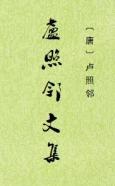 〔唐〕卢照邻
盧照鄰文集